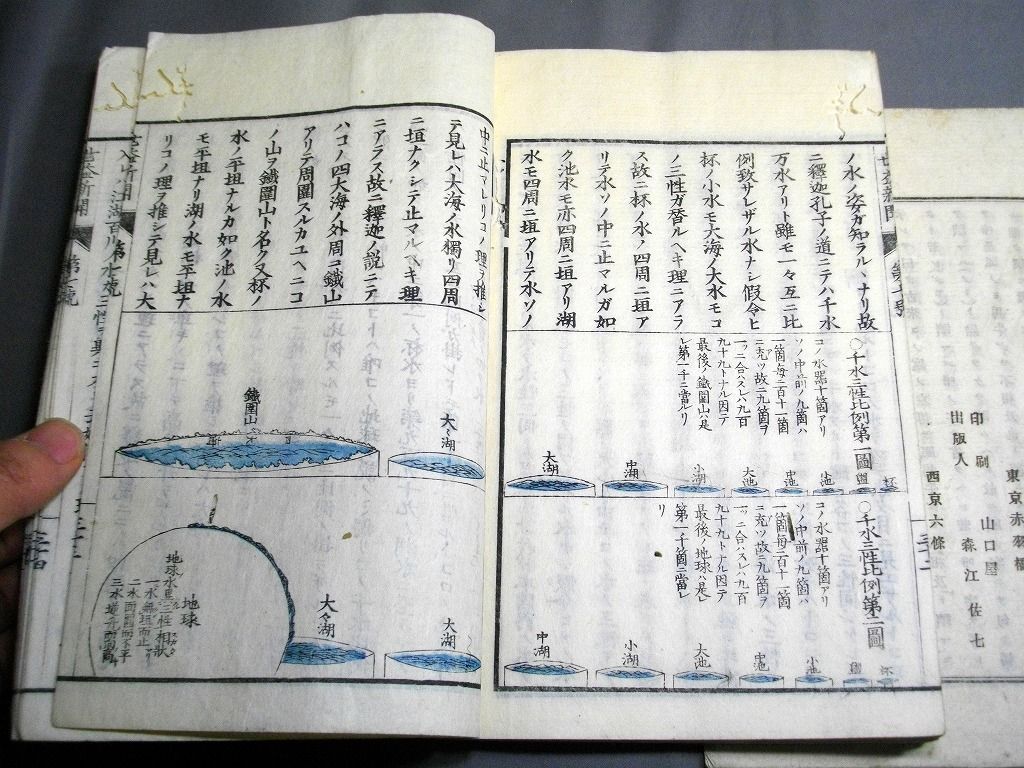 ノ水ノ姿ガ知ラルヽナリ故
ニ釋迦孔子ノ道ニテハ千水
万水アリト雖モ一々互ニ比
例致サレザル水ナシ假令ヒ
杯ノ小水モ大海ノ大水モコ
ノ三性ガ替ルヘキ理ニアラ
ス故ニ杯ノ水ノ四周ニ垣ア
リテ水ソノ中ニ止マルガ如
ク池水モ亦四周ニ垣アリ湖
水モ四周ニ垣アリテ水ソノ
〇千水三性比例第一圖
コノ水器十箇アリ
ソノ中前ノ九箇ハ
一箇每ニ百十一箇
ニ充ツ故ニ九箇ヲ
一ツニ合スレハ九百
九十九トナル因テ
最後ノ鐵圍山ハ是
レ第一千ニ當ルリ
杯
盥
小池
中池
大池
小湖
中湖
大湖
〇千水三性比例第二圖
コノ水器十箇アリ
ソノ中前ノ九箇ハ
一箇每ニ百十一箇
ニ充ツ故ニ九箇ヲ
一ツニ合スレハ九百
九十九トナル因テ
最後ノ地球ハ是レ
第一千箇ニ當レ
リ
杯
盥
小池
中池
大池
小湖
中湖
中ニ止マレリコノ理ヲ推シ
テ見レハ大海ノ水獨リ四周
ニ垣ナクシテ止マルヘキ理
ニアラス故ニ釋迦ノ説ニア
ハコノ四大海ノ外周コ鐵山
アリテ周圍スルカユヘニコ
ノ山ヲ鐵圍山ト名ク又杯ノ
水ノ平坦ナルカ如ク池ノ水
モ平坦ナリ湖ノ水モ平坦ナ
リコノ理ヲ推シテ見レハ大
大々湖
鐵圍山
大湖
大々湖
地球
地球水里三性相狀
一水無垣而止
二水面圓而不平
印刷 山口屋
出版人 森江佐七
東京赤羽橋
西京六條